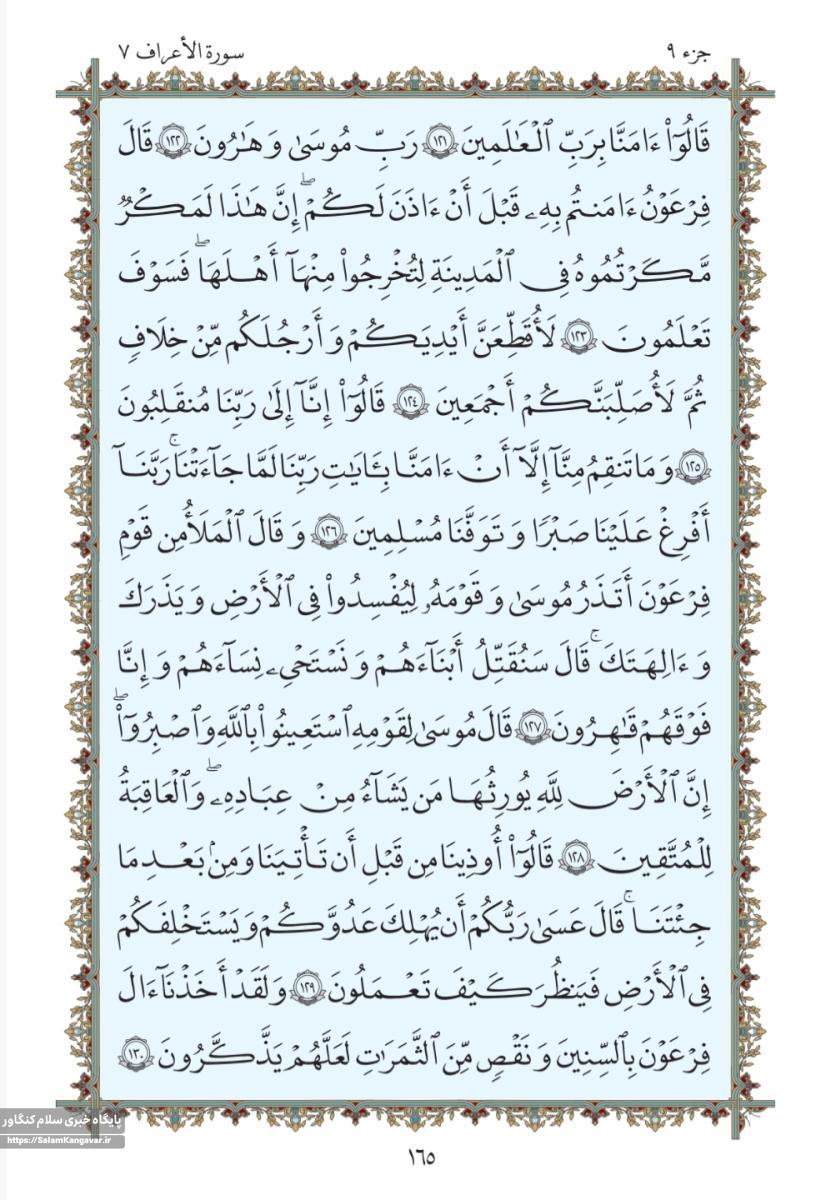 جزء ٩
سورة الأعراف ٧
قَالُوٓا۟ ءَامَنَّا بِرَبِّ ٱلْعَـٰلَمِينَ ١٢١ رَبِّ مُوسَىٰ وَهَـٰرُونَ ١٢٢ قَالَ
فِرْعَوْنُ ءَامَنتُم بِهِۦ قَبْلَ أَنْ ءَاذَنَ لَكُمْ ۖ إِنَّ هَـٰذَا لَمَكْرٌ
مَّكَرْتُمُوهُ فِى ٱلْمَدِينَةِ لِتُخْرِجُوا۟ مِنْهَآ أَهْلَهَا ۖ فَسَوْفَ
تَعْلَمُونَ ١٢٣ لَأُقَطِّعَنَّ أَيْدِيَكُمْ وَأَرْجُلَكُم مِّنْ خِلَافٍ
ثُمَّ لَأُصَلِّبَنَّكُمْ أَجْمَعِينَ ١٢٤ قَالُوٓا۟ إِنَّآ إِلَىٰ رَبِّنَا مُنقَلِبُونَ
١٢٥ وَمَا تَنقِمُ مِنَّآ إِلَّآ أَنْ ءَامَنَّا بِـَٔايَـٰتِ رَبِّنَا لَمَّا جَآءَتْنَا ۚ رَبَّنَآ
أَفْرِغْ عَلَيْنَا صَبْرًا وَتَوَفَّنَا مُسْلِمِينَ ١٢٦ وَقَالَ ٱلْمَلَأُ مِن قَوْمِ
فِرْعَوْنَ أَتَذَرُ مُوسَىٰ وَقَوْمَهُۥ لِيُفْسِدُوا۟ فِى ٱلْأَرْضِ وَيَذَرَكَ
وَءَالِهَتَكَ ۚ قَالَ سَنُقَتِّلُ أَبْنَآءَهُمْ وَنَسْتَحْىِۦ نِسَآءَهُمْ وَإِنَّا
فَوْقَهُمْ قَـٰهِرُونَ ١٢٧ قَالَ مُوسَىٰ لِقَوْمِهِ ٱسْتَعِينُوا۟ بِٱللَّهِ وَٱصْبِرُوٓا۟ ۖ
إِنَّ ٱلْأَرْضَ لِلَّهِ يُورِثُهَا مَن يَشَآءُ مِنْ عِبَادِهِۦ ۖ وَٱلْعَـٰقِبَةُ
لِلْمُتَّقِينَ ١٢٨ قَالُوٓا۟ أُوذِينَا مِن قَبْلِ أَن تَأْتِيَنَا وَمِنۢ بَعْدِ مَا
جِئْتَنَا ۚ قَالَ عَسَىٰ رَبُّكُمْ أَن يُهْلِكَ عَدُوَّكُمْ وَيَسْتَخْلِفَكُمْ
فِى ٱلْأَرْضِ فَيَنظُرَ كَيْفَ تَعْمَلُونَ ١٢٩ وَلَقَدْ أَخَذْنَآ ءَالَ
فِرْعَوْنَ بِٱلسِّنِينَ وَنَقْصٍ مِّنَ ٱلثَّمَرَٰتِ لَعَلَّهُمْ يَذَّكَّرُونَ ١٣٠
پایگاه خبری سلام کنگاور
https://SalamKangavar.ir
١٦٥